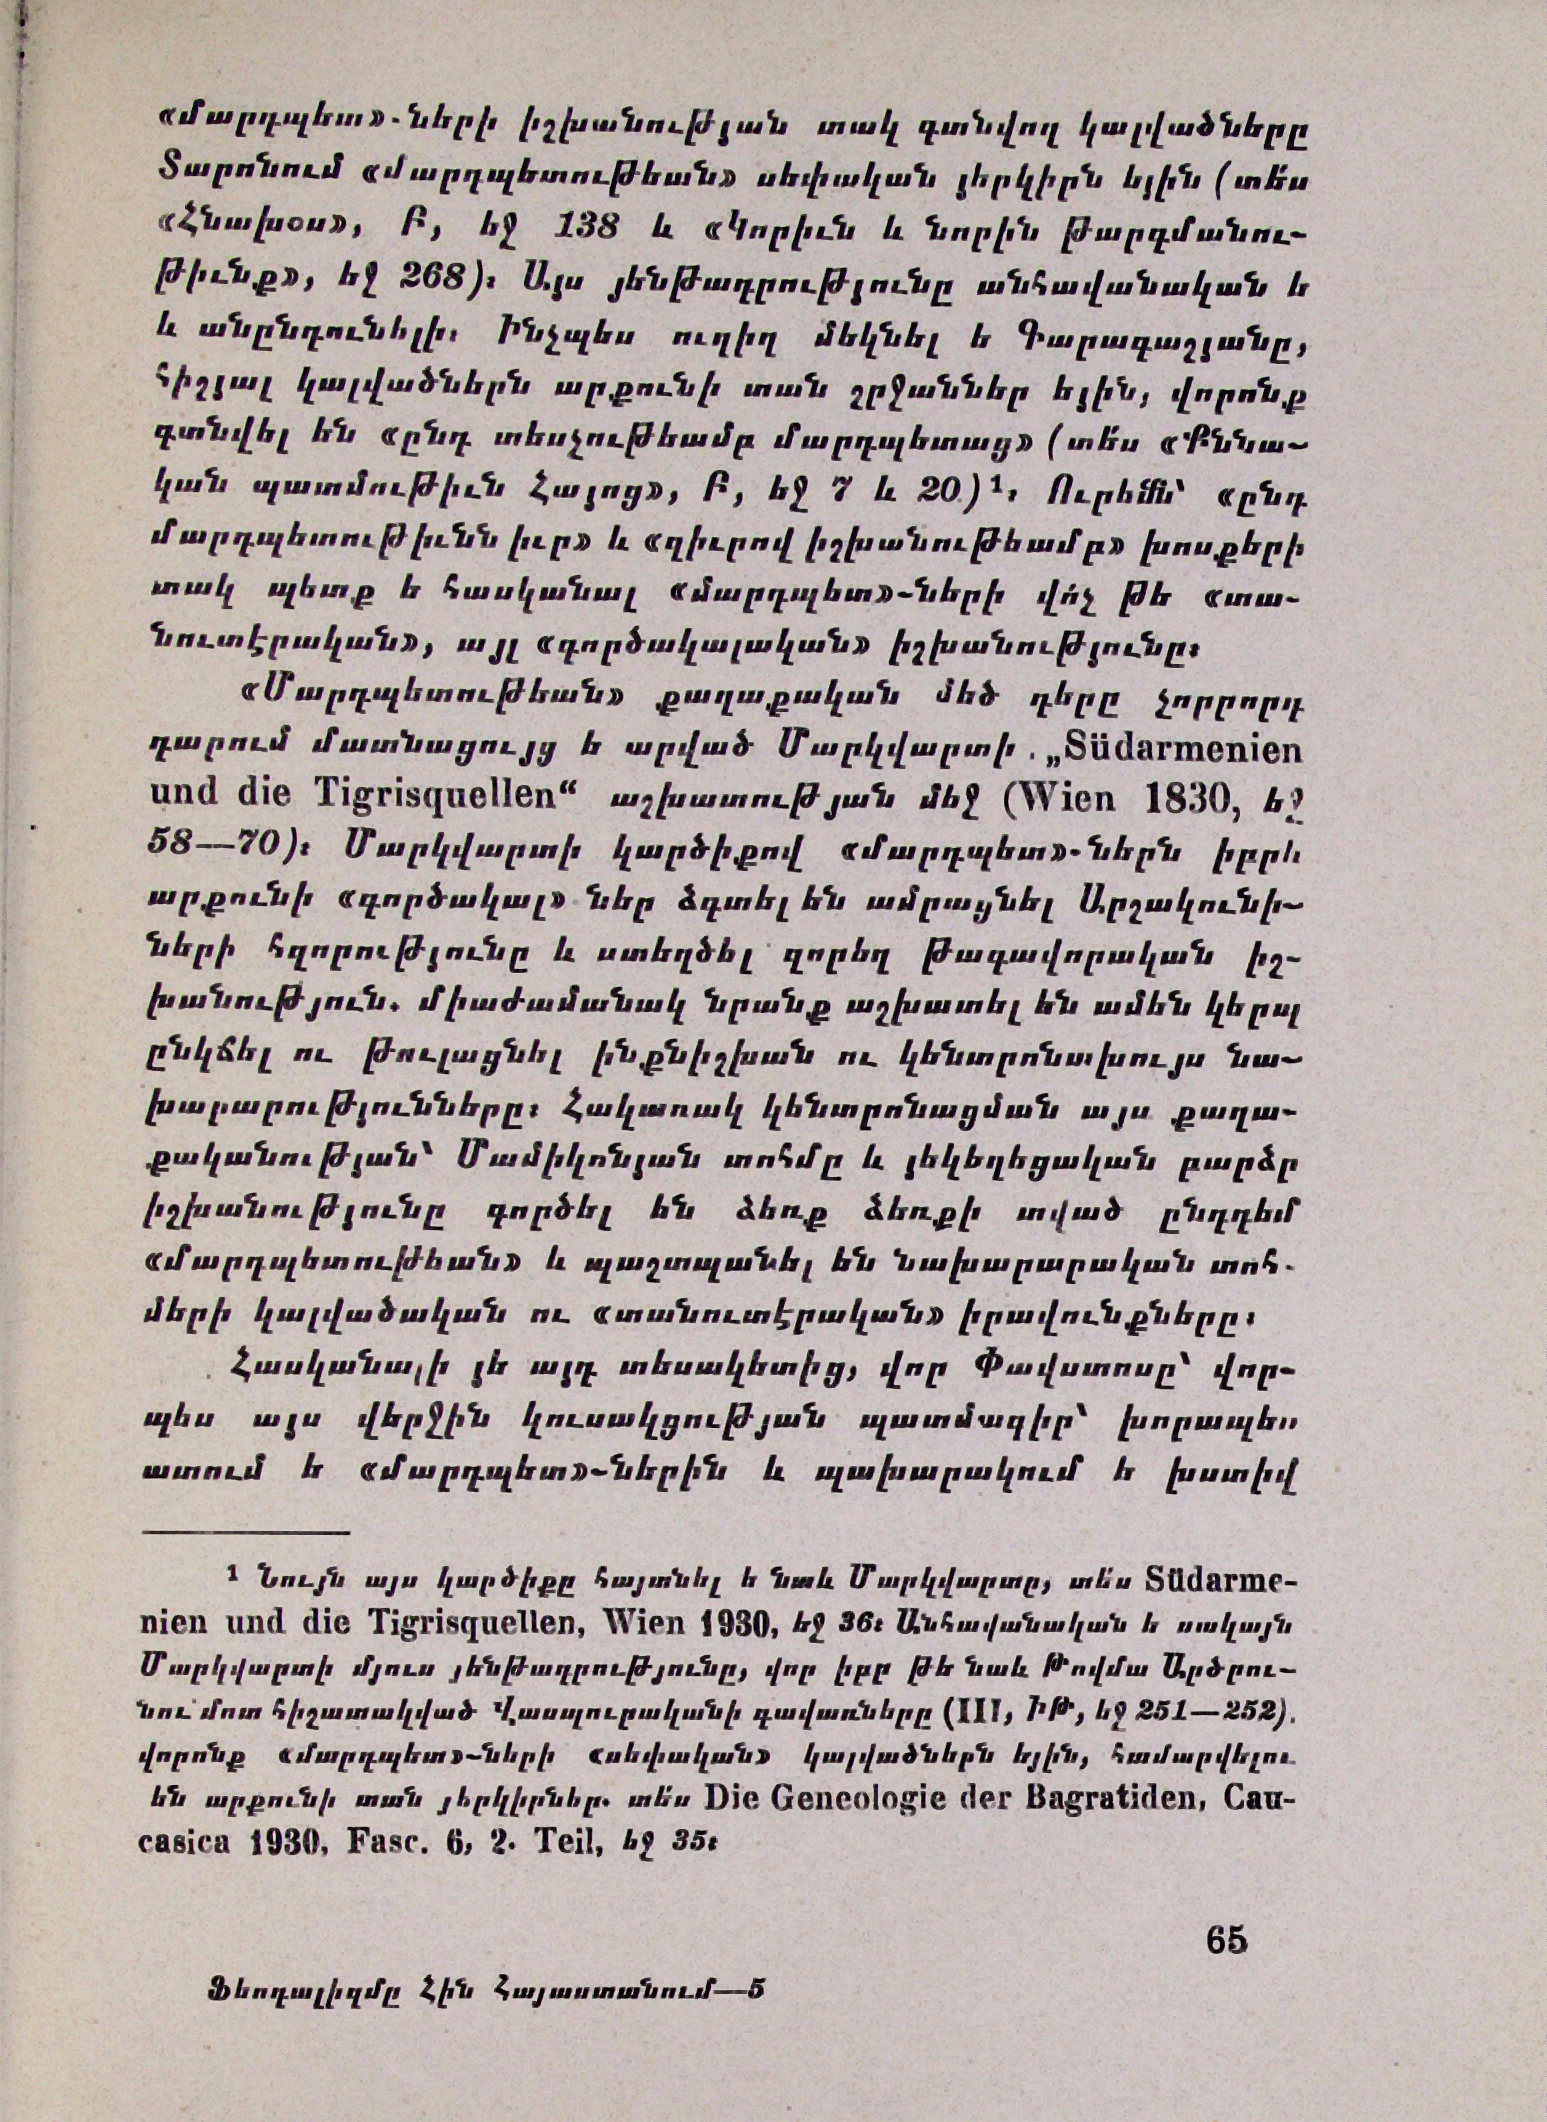 «մարդպետ»-ների իշխանության տակ գտնվող կալվածները
Տարոնում «մարդպետութեան» սեփական յերկիրն եյին (տե՛ս
«Հնախօս», Բ, եջ 138 և «Կորիւն և նորին թարգմանու-
թիւնք», եջ 268)։ Այս յենթադրությունը անհավանական ե
և անընդունելի։ Ինչպես ուղիղ մեկնել ե Գարագաշյանը,
հիշյալ կալվածներն արքունի տան շրջաններ եյին, վորոնք
գտնվել են «ընդ տեսչութեամբ մարդպետաց» (տե՛ս «Քննա-
կան պատմութիւն Հայոց», Բ, եջ 7 և 20)¹։ Ուրեմն՝ «ընդ
մարդպետութիւնն իւր» և «ղիւրով իշխանութեամբ» խոսքերի
տակ պետք ե հասկանալ «մարդպետ»-ների վո՛չ թե «տա-
նուտէրական», այլ «գործակալական» իշխանությունը։
«Մարդպետութեան» քաղաքական մեծ դերը չորրորդ
դարում մատնացույց ե արված Մարկվարտի „Südarmenien
und die Tigrisquellen“ աշխատության մեջ (Wien 1830, եջ
58—70)։ Մարկվարտի կարծիքով «մարդպետ»-ներն իբրև
արքունի «գործակալ»-ներ ձգտել են ամրացնել Արշակունի-
ների հզորությունը և ստեղծել զորեղ թագավորական իշ-
խանություն. միաժամանակ նրանք աշխատել են ամեն կերպ
ընկճել ու թուլացնել ինքնիշխան ու կենտրոնախույս նա-
խարարությունները։ Հակառակ կենտրոնացման այս քաղա-
քականության՝ Մամիկոնյան տոհմը և յեկեղեցական բարձր
իշխանությունը գործել են ձեռք ձեռքի տված ընդդեմ
«մարդպետութեան» և պաշտպանել են նախարարական տոհ-
մերի կալվածական ու «տանուտէրական» իրավունքները։
Հասկանալի յե այդ տեսակետից, վոր Փավստոսը՝ վոր-
պես այս վերջին կուսակցության պատմագիր՝ խորապես
ատում ե «մարդպետ»-ներին և պախարակում ե խստիվ
¹ Նույն այս կարծիքը հայտնել ե նաև Մարկվարտը, տե՛ս Südarme-
nien und die Tigrisquellen, Wien 1930, եջ 36։ Անհավանական ե սակայն
Մարկվարտի մյուս յենթադրությունը, վոր իբր թե նաև Թովմա Արծրու-
նու մոտ հիշատակված Վասպուրականի գավառները (III, ԻԹ, եջ 251—252).
վորոնք «մարդպետ»-ների «սեփական» կալվածներն եյին, համարվելու
են արքունի տան յերկիրներ. տե՛ս Die Geneologie der Bagratiden, Cau-
casica 1930, Fasc. 6, 2. Teil, եջ 35։
65
Ֆեոդալիզմը Հին Հայաստանում—5